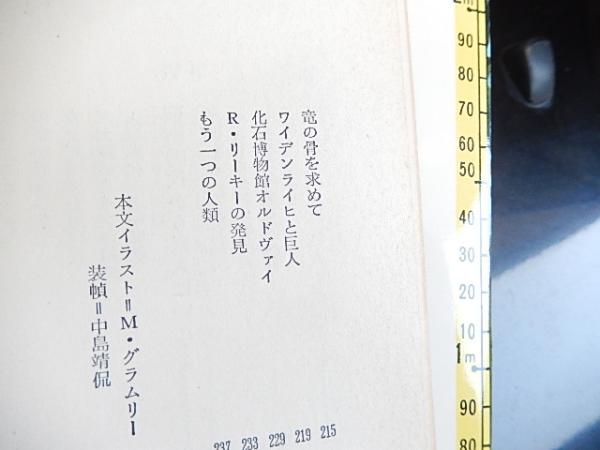 竜の骨を求めて 215
ワイデンライヒと巨人 219
化石博物館オルドヴァイ 229
R・リーキーの発見 233
もう一つの人類 237
本文イラスト=M・グラムリー
装幀=中島靖侃
90
80
70
60
50
40
30
20
10
1m
90
80